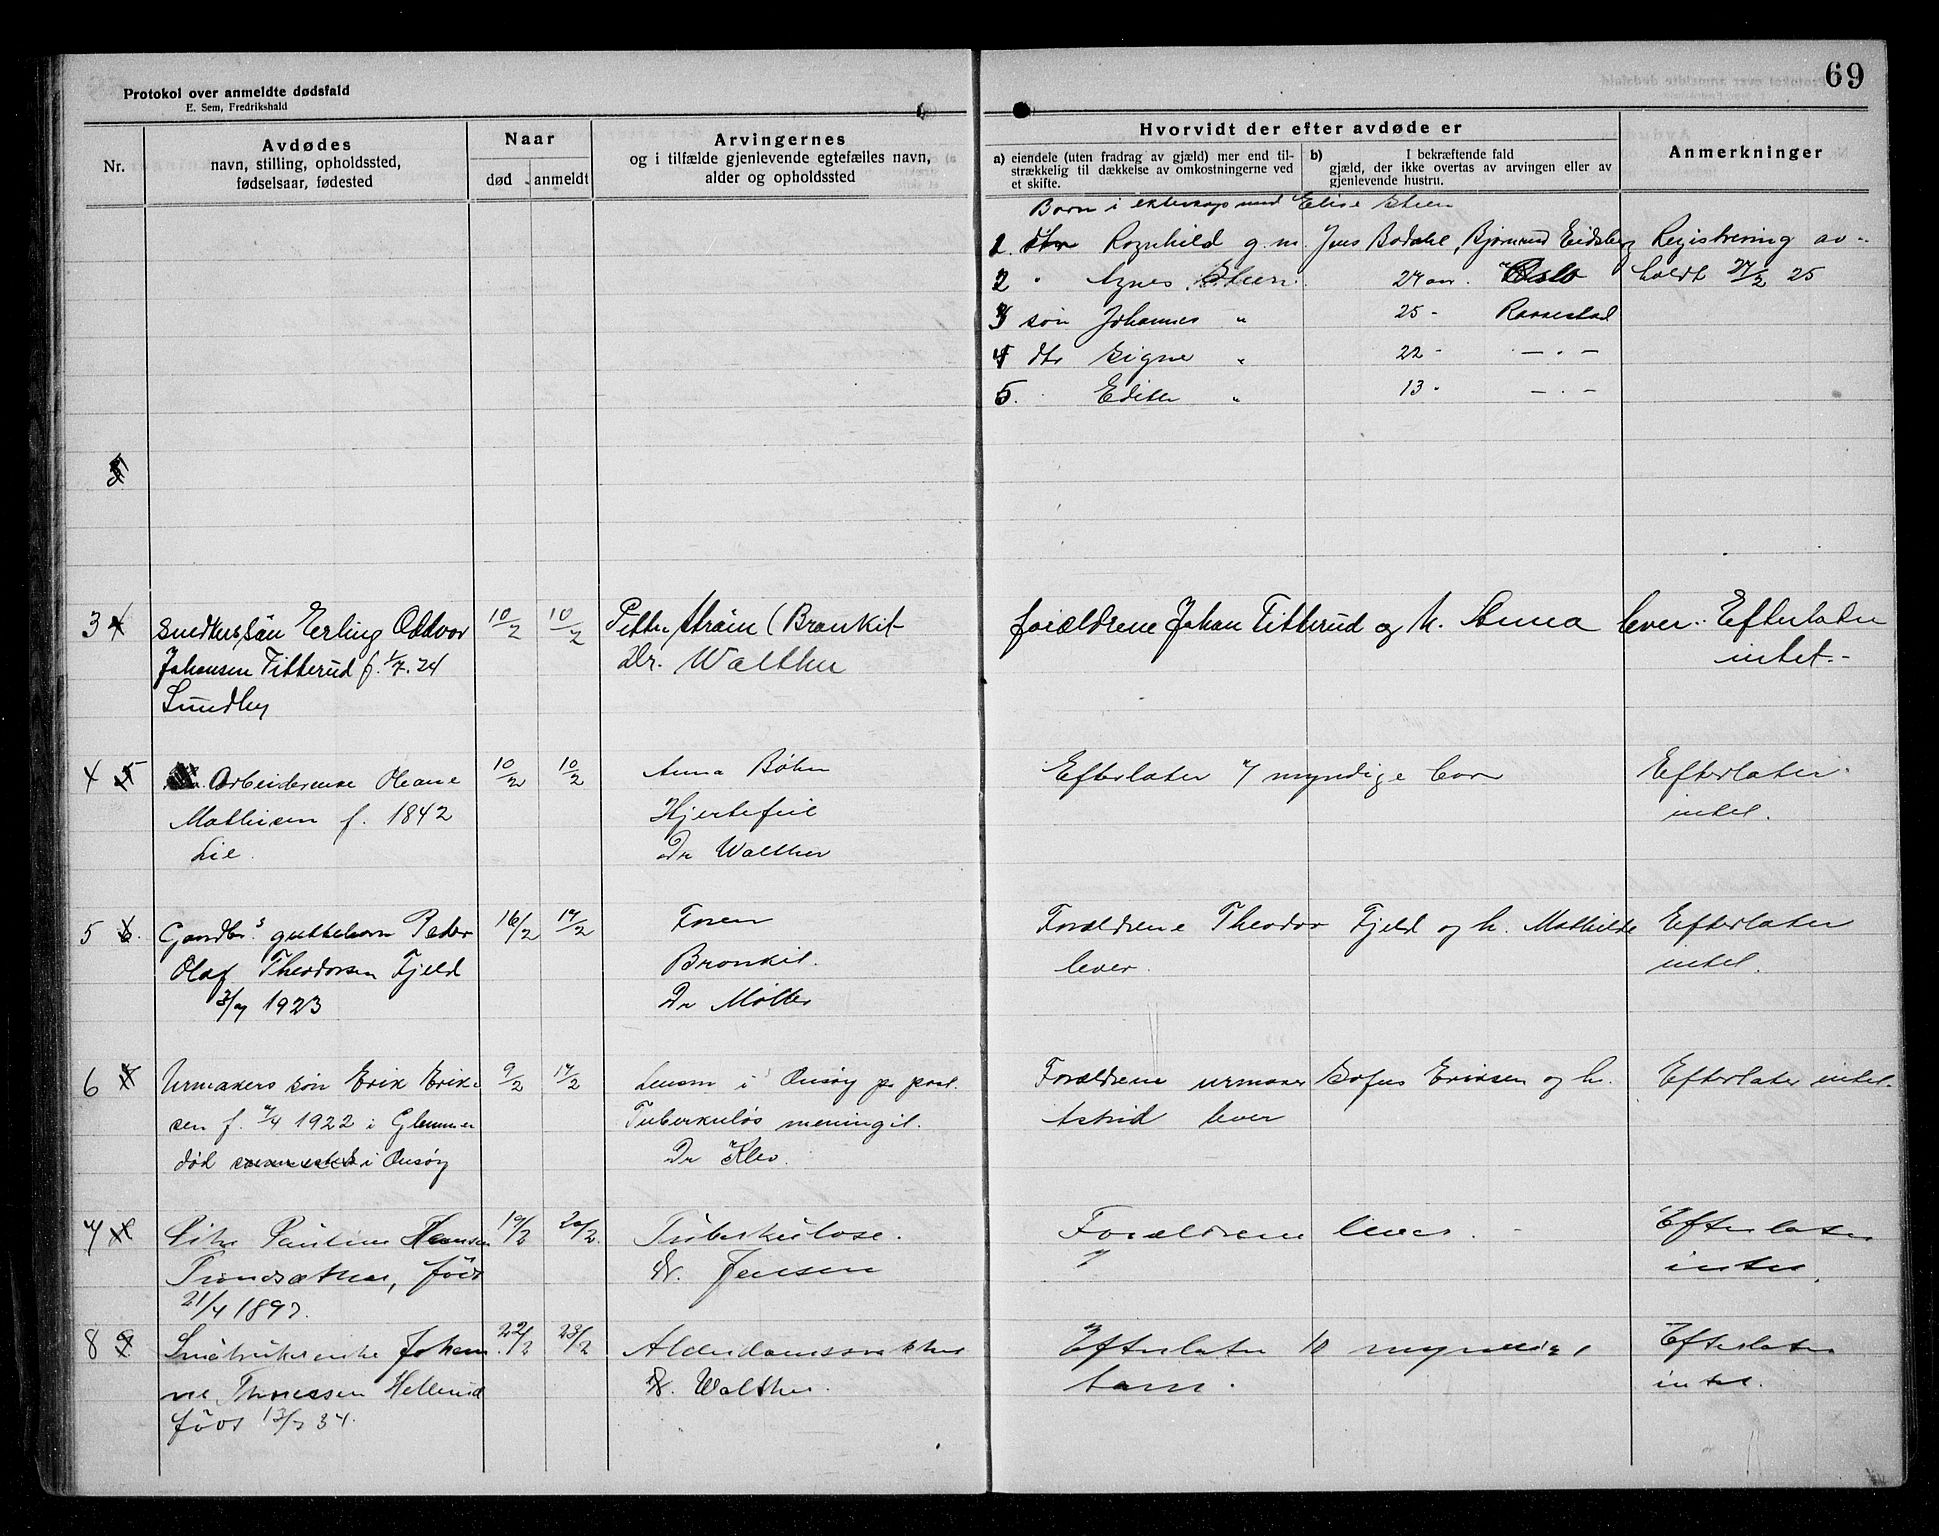 69
Protokol over anmeldte dødsfald
E. Sem, Fredrikshald
Nr.
Avdødes
navn, stilling, opholdssted,
fødselsaar, fødested
Naar
død
anmeldt
Arvingernes
og i tilfælde gjenlevende egtefælles navn,
alder og opholdssted
Hvorvidt der efter avdøde er
a) eiendele (uten fradrag av gjæld) mer end til-
strækkelig til dækkelse av omkostningerne ved
et skifte.
b) I bekræftende fald
gjæld, der ikke overtas av arvingen eller av
gjenlevende hustru.
Anmerkninger
Barn i ekteskap med Elise Steen
1. dtr Ragnhild g. m. Jens Bodahl, Bjørnrud Eidsberg
Registrering av-
2 " Agnes Steen. 27 aar. Oslo
holdt 27/2 25
3 søn Johannes " 25 - Rakkestad
4 dtr Signe " 22 - — . —
5. " Edith " 13 - — . —
3
Erling Oddvar
Johansen Titterud f. 1/7. 24
Sundby
10/2
10/2
(Bronkit
Dr. Walther
forældrene Johan Titterud og h. Anna lever.
Efterlater
intet.-
4
Arbeiderenke Oleane
Mathisen f. 1842
Lie.
10/2
10/2
Anna Bøhn
Hjertefeil
Dr Walther
Efterlater 7 myndige barn
Efterlater
intet.
5
Gaardbr.s guttebarn Peder
Olaf Theodorsen Fjeld
3/7 1923
16/2
17/2
Faren
Bronkit.
Dr Møller
Forældrene Theodor Fjeld og h. Mathilde
lever.
Efterlater
intet.
6
Urmakers søn Erik Erik-
sen f. 7/4 1922 i Glemmen
død i Onsøy
9/2
17/2
Lensm i Onsøy pr post.
Tuberkuløs meningit.
Dr Klev.
Forældrene urmaker Sofus Eriksen og h.
Astrid lever
Efterlater intet.
7
Pike Pauline Hansen
født
21/4 1897.
19/2
20/2.
Tuberkulose.
dr. Jensen
Forældrene lever.
Efterlater
intet.
8
Småbrukerenke Johan
ne Thoressen Hellerud
født 13/7 34.
22/2
23/2
Alderdomssvakhet
dr. Walther.
Efterlater 10 myndige
barn.
Efterlater
intet.